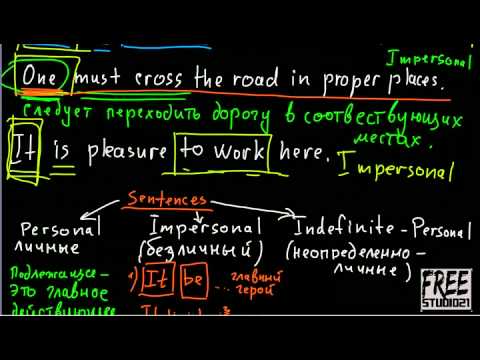 Impersonal
One must cross the road in proper places.
Следует переходить дорогу в соотвествующих
местах.
It is pleasure to work here. Impersonal
Sentences
Personal Impersonal Indefinite - Personal
личные (безличный) (неопределенно -
личные)
Подлежащее - а) It be ... главный
это главное герой
действующее
FREE
STUDIO21